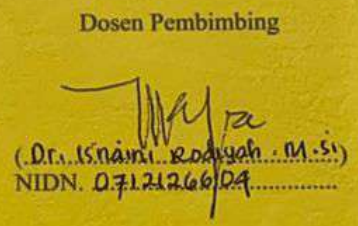 Dosen Pembimbing
(Dr. Isnaini Rodiyah. M.si)
NIDN. 0712126604